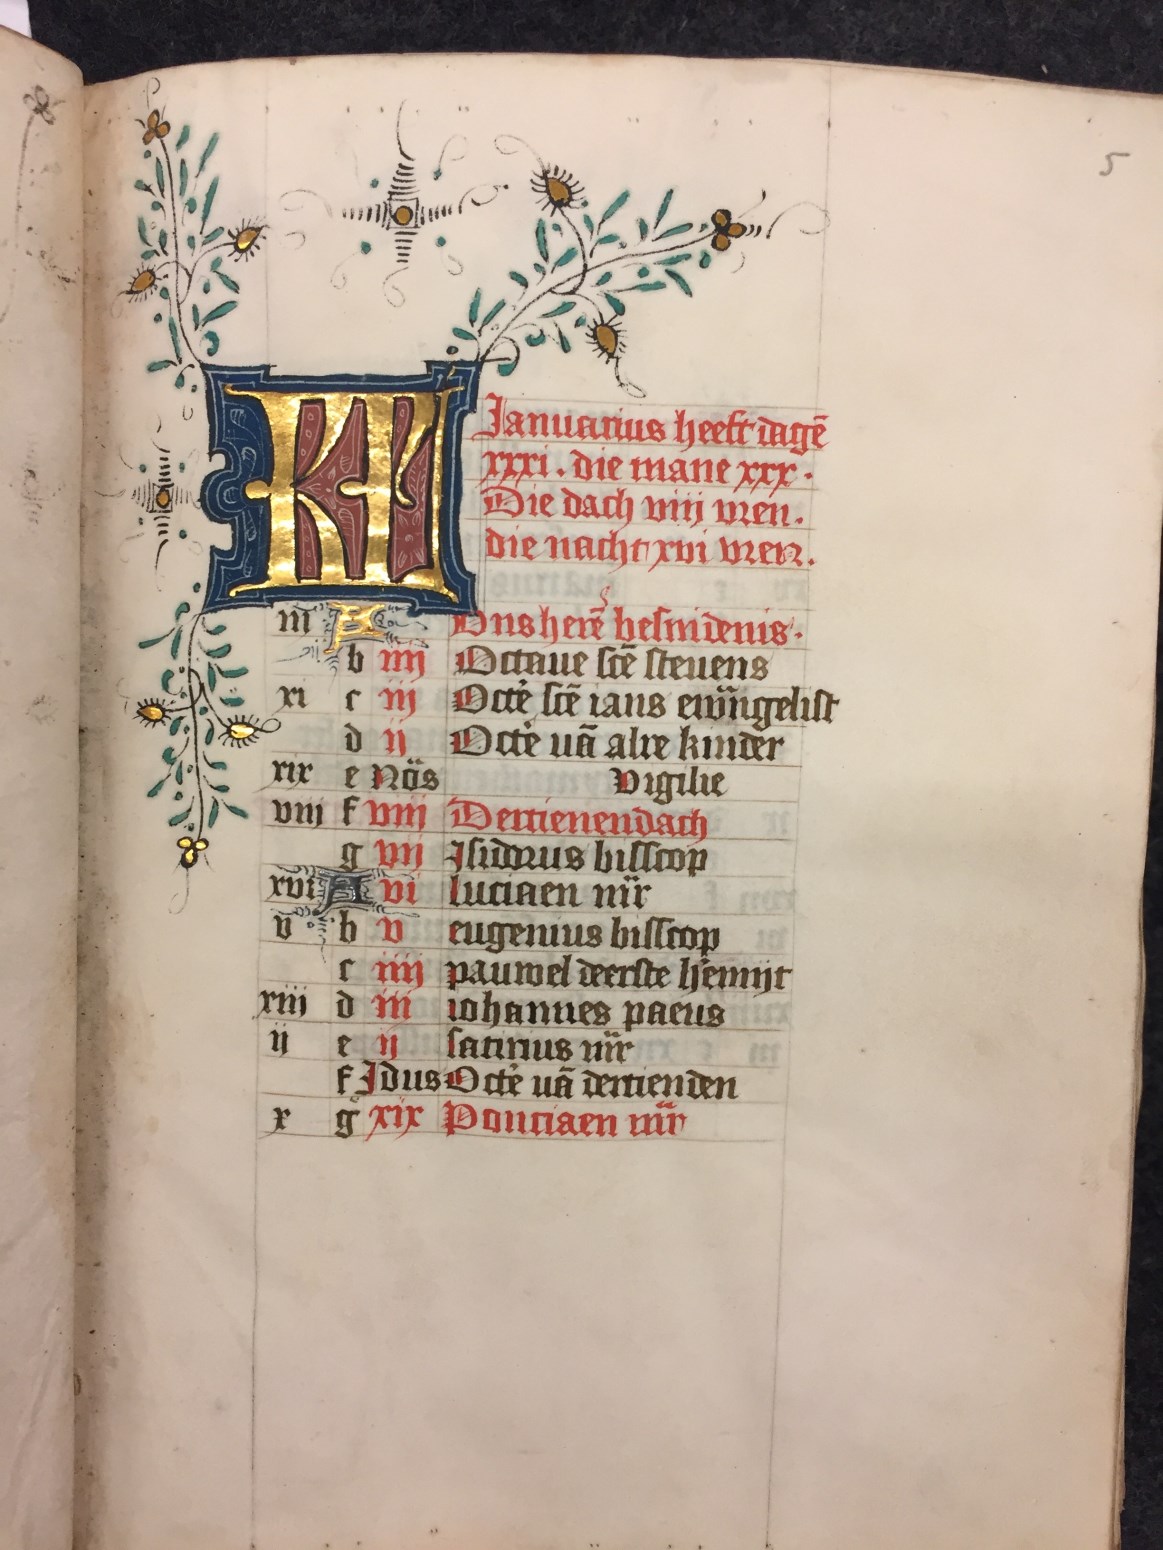 5
KL Januarius heeft dagē
xxxi . die mane xxx .
Die dach viij vren .
die nacht xvi vren .
iij A Ons herē besnidenis .
b iiij Octaue scē steuens
xi c iij Octē scē ians ewāngelist
d ij Octē vā alre kinder
xix e Nōs Vigilie
viij f viij Dertienendach
g vij Isidorus bisscop
xvi A vi luciaen mr̄
v b v eugenius bisscop
c iiij pauwel deerste hēmijt
xiij d iij iohannes paeus
ij e ij satirius mr̄
f Idus Octē vā dertienden
x g xix Ponciaen mr̄